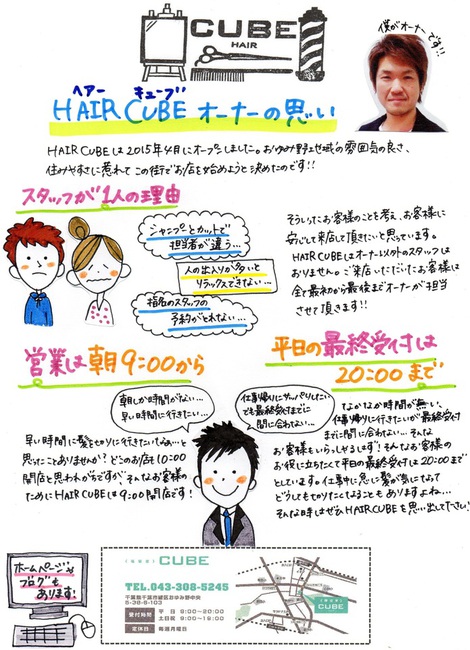 CUBE
HAIR
僕がオーナーです!!
ヘアー キューブ
HAIR CUBE オーナーの思い
HAIR CUBEは2015年4月にオープンしました。おゆみ野地域の雰囲気の良さ、
住みやすさに惹れてこの街でお店を始めようと決めたのです!!
スタッフが1人の理由
シャンプーとカットで
担当者が違う…
人の出入りが多いと
リラックスできない…
指名のスタッフの
予約がとれない…
そういったお客様のことを考え、お客様に
安心して来店して頂きたいと思っています。
HAIR CUBEはオーナー以外のスタッフは
おりません。ご来店いただいたお客様は
全て最初から最後までオーナーが担当
させて頂きます!!
営業は朝9:00から
朝しか時間がない…
早い時間に行きたい…
早い時間に髪をセットに行きたいなぁ…と
思ったことありませんか?どこのお店も10:00
開店と思われがちですが、そんなお客様の
ためにHAIR CUBEは9:00開店です!
平日の最終受付は
20:00まで
仕事帰りにサッパリしたい
でも最終受付までに
間に合わない…
なかなか時間が無い、
仕事帰りに行きたいが最終受付
までに間に合わない…そんな
お客様もいらっしゃいます!そんなお客様の
お役に立ちたくて平日の最終受付は20:00まで
としています。仕事中に急に髪が気になって
どうしても切りたくなることもありますよね…
そんな時はぜひHAIR CUBEを思い出して下さい!
ホームページや
ブログも
あります!
CUBE
TEL.043-308-5245
千葉県千葉市緑区おゆみ野中央
5-38-6-103
受付時間 平 日 9:00~20:00
土日祝 9:00~19:00
定休日 毎週月曜日
CUBE